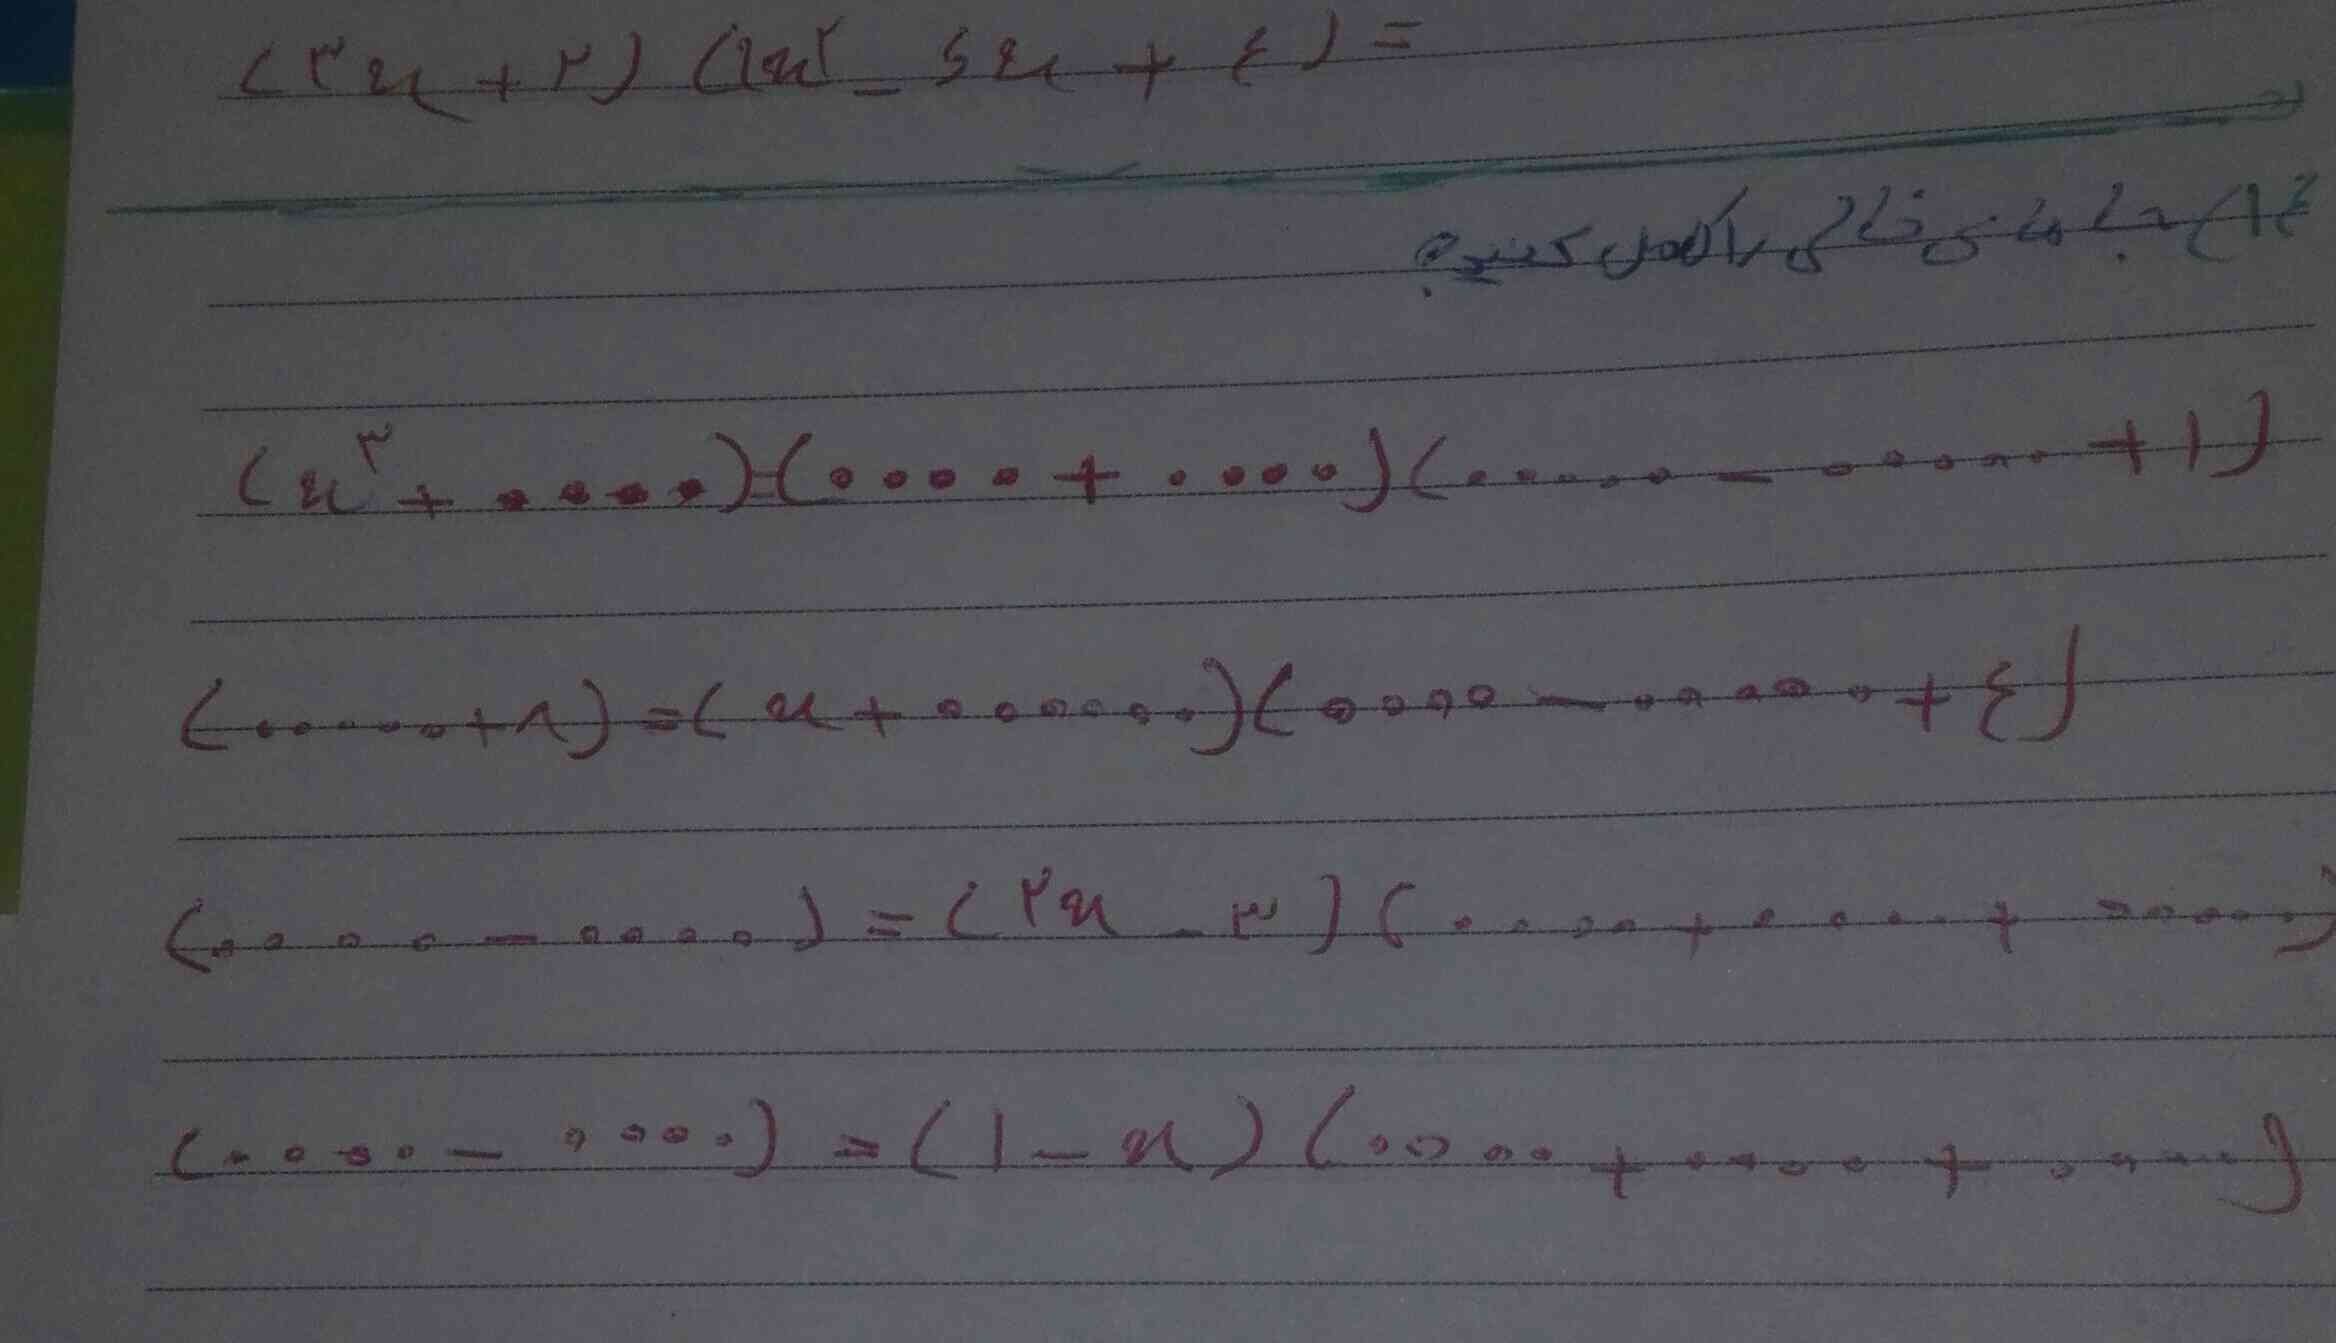 (۳x + ۲) (۹x² - ۶x + ۴) =
۱۴) جاهای خالی را کامل کنید؟
(x³ + ....) = (.... + ....) (...... - ...... + ۱)
(...... + ۸) = (x + ......) (.... - ..... + ۴)
(.... - ....) = (۲x - ۳) (.... + .... + ....)
(.... - ....) = (۱ - x) (.... + .... + ....)